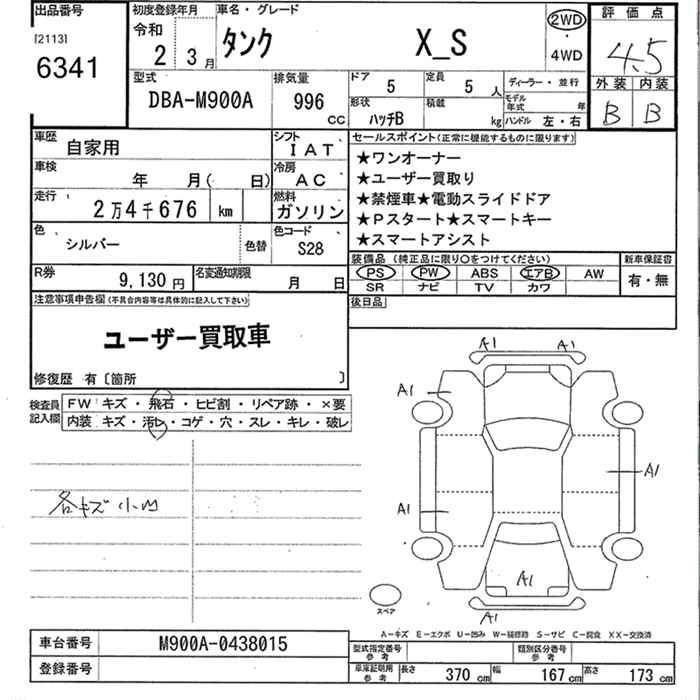 出品番号
[2113]
6341
初度登録年月
令和
2 3月
車名・グレード
タンク X_S
2WD
・
4WD
評価点
4.5
外装 内装
B B
型式
DBA-M900A
排気量
996
CC
ドア
5
定員
5 人
形状
ハッチB
積載
kg
ディーラー・並行
モデル年式 年
ハンドル 左・右
車歴
自家用
シフト
IAT
車検
年 月( 日)
冷房
AC
走行
2万4千676 km
燃料
ガソリン
色
シルバー
色替
色コード
S28
R券
9,130円
名変通知期限
月 日
セールスポイント(正常に機能するものに限ります)
★ワンオーナー
★ユーザー買取り
★禁煙車★電動スライドドア
★Pスタート★スマートキー
★スマートアシスト
装備品(純正品に限り○をつけてください)
PS PW ABS エアB AW
SR ナビ TV カワ
新車保証書
有・無
後日品
注意事項申告欄(不具合内容等は具体的に記入して下さい)
ユーザー買取車
修復歴 有〔箇所 〕
検査員記入欄
FW キズ・飛石・ヒビ割・リペア跡・×要
内装 キズ・汚レ・コゲ・穴・スレ・キレ・破レ
各キズ小凹
A1 A1
A1
A1
A1
A1
A1
スペア
A-キズ E-エクボ U-凹み W-補修跡 S-サビ C-腐食 XX-交換済
車台番号
M900A-0438015
登録番号
型式指定番号
参考
類別区分番号
参考
車庫証明用
参考
長さ 370cm 幅 167cm 高さ 173cm